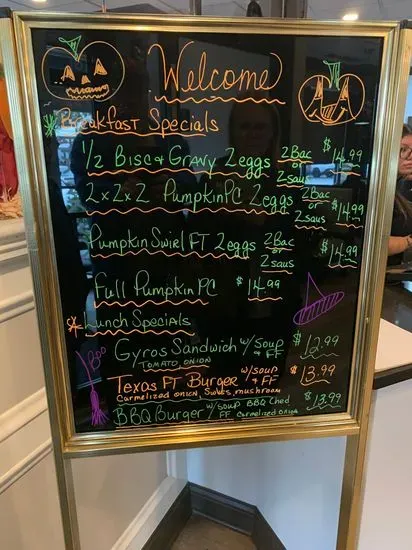 Welcome
Breakfast Specials
1/2 Bisc + Gravy 2eggs 2Bac or 2saus $14.99
2x2x2 Pumpkin PC 2eggs 2Bac or 2saus $14.99
Pumpkin Swirl FT 2eggs 2Bac or 2saus $14.99
Full Pumpkin PC $14.99
Lunch Specials
Gyros Sandwich w/ Soup + FF $12.99
Tomato, Onion
Texas FT Burger w/soup + FF $13.99
Carmelized onion, Swiss, mushroom
BBQ Burger w/soup FF BBQ Ched Carmelized onion $13.99